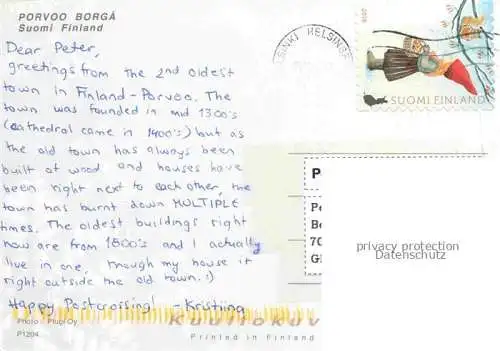 PORVOO BORGÅ
Suomi Finland
Dear Peter,
greetings from the 2nd oldest
town in Finland - Porvoo. The
town was founded in mid 1300's
(cathedral came in 1400's) but as
the old town has always been
built of wood and houses have
been right next to each other, the
town has burnt down MULTIPLE
times. The oldest buildings right
now are from 1800's and I actually
live in one, though my house it
right outside the old town. :)
Happy Postcrossing! - Kristiina
Photo: Plupi Oy
P1204
Printed in Finland
HELSINGF
SUOMI FINLAND
P
Pe
Be
70
privacy protection
Datenschutz